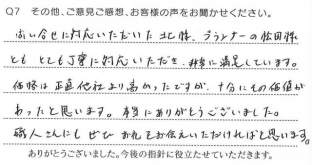 Q7 その他、ご意見ご感想、お客様の声をお聞かせください。
お問い合せに対応いただいた北條様、プランナーの松田様
とも とても丁寧に対応いただき、非常に満足しています。
価格は正直他社より高かったですが、十分にその価値が
あったと思います。本当にありがとうございました。
職人さんにも ぜひ お礼をお伝えいただければと思います。
ありがとうございました。今後の指針に役立たせていただきます。